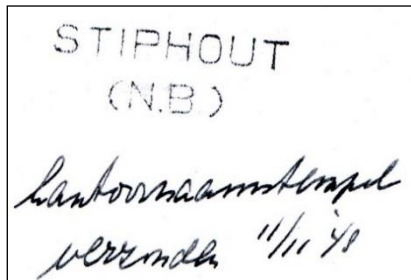 STIPHOUT
(N.B.)
kantoornaamstempel
verzonden 11/11 '48